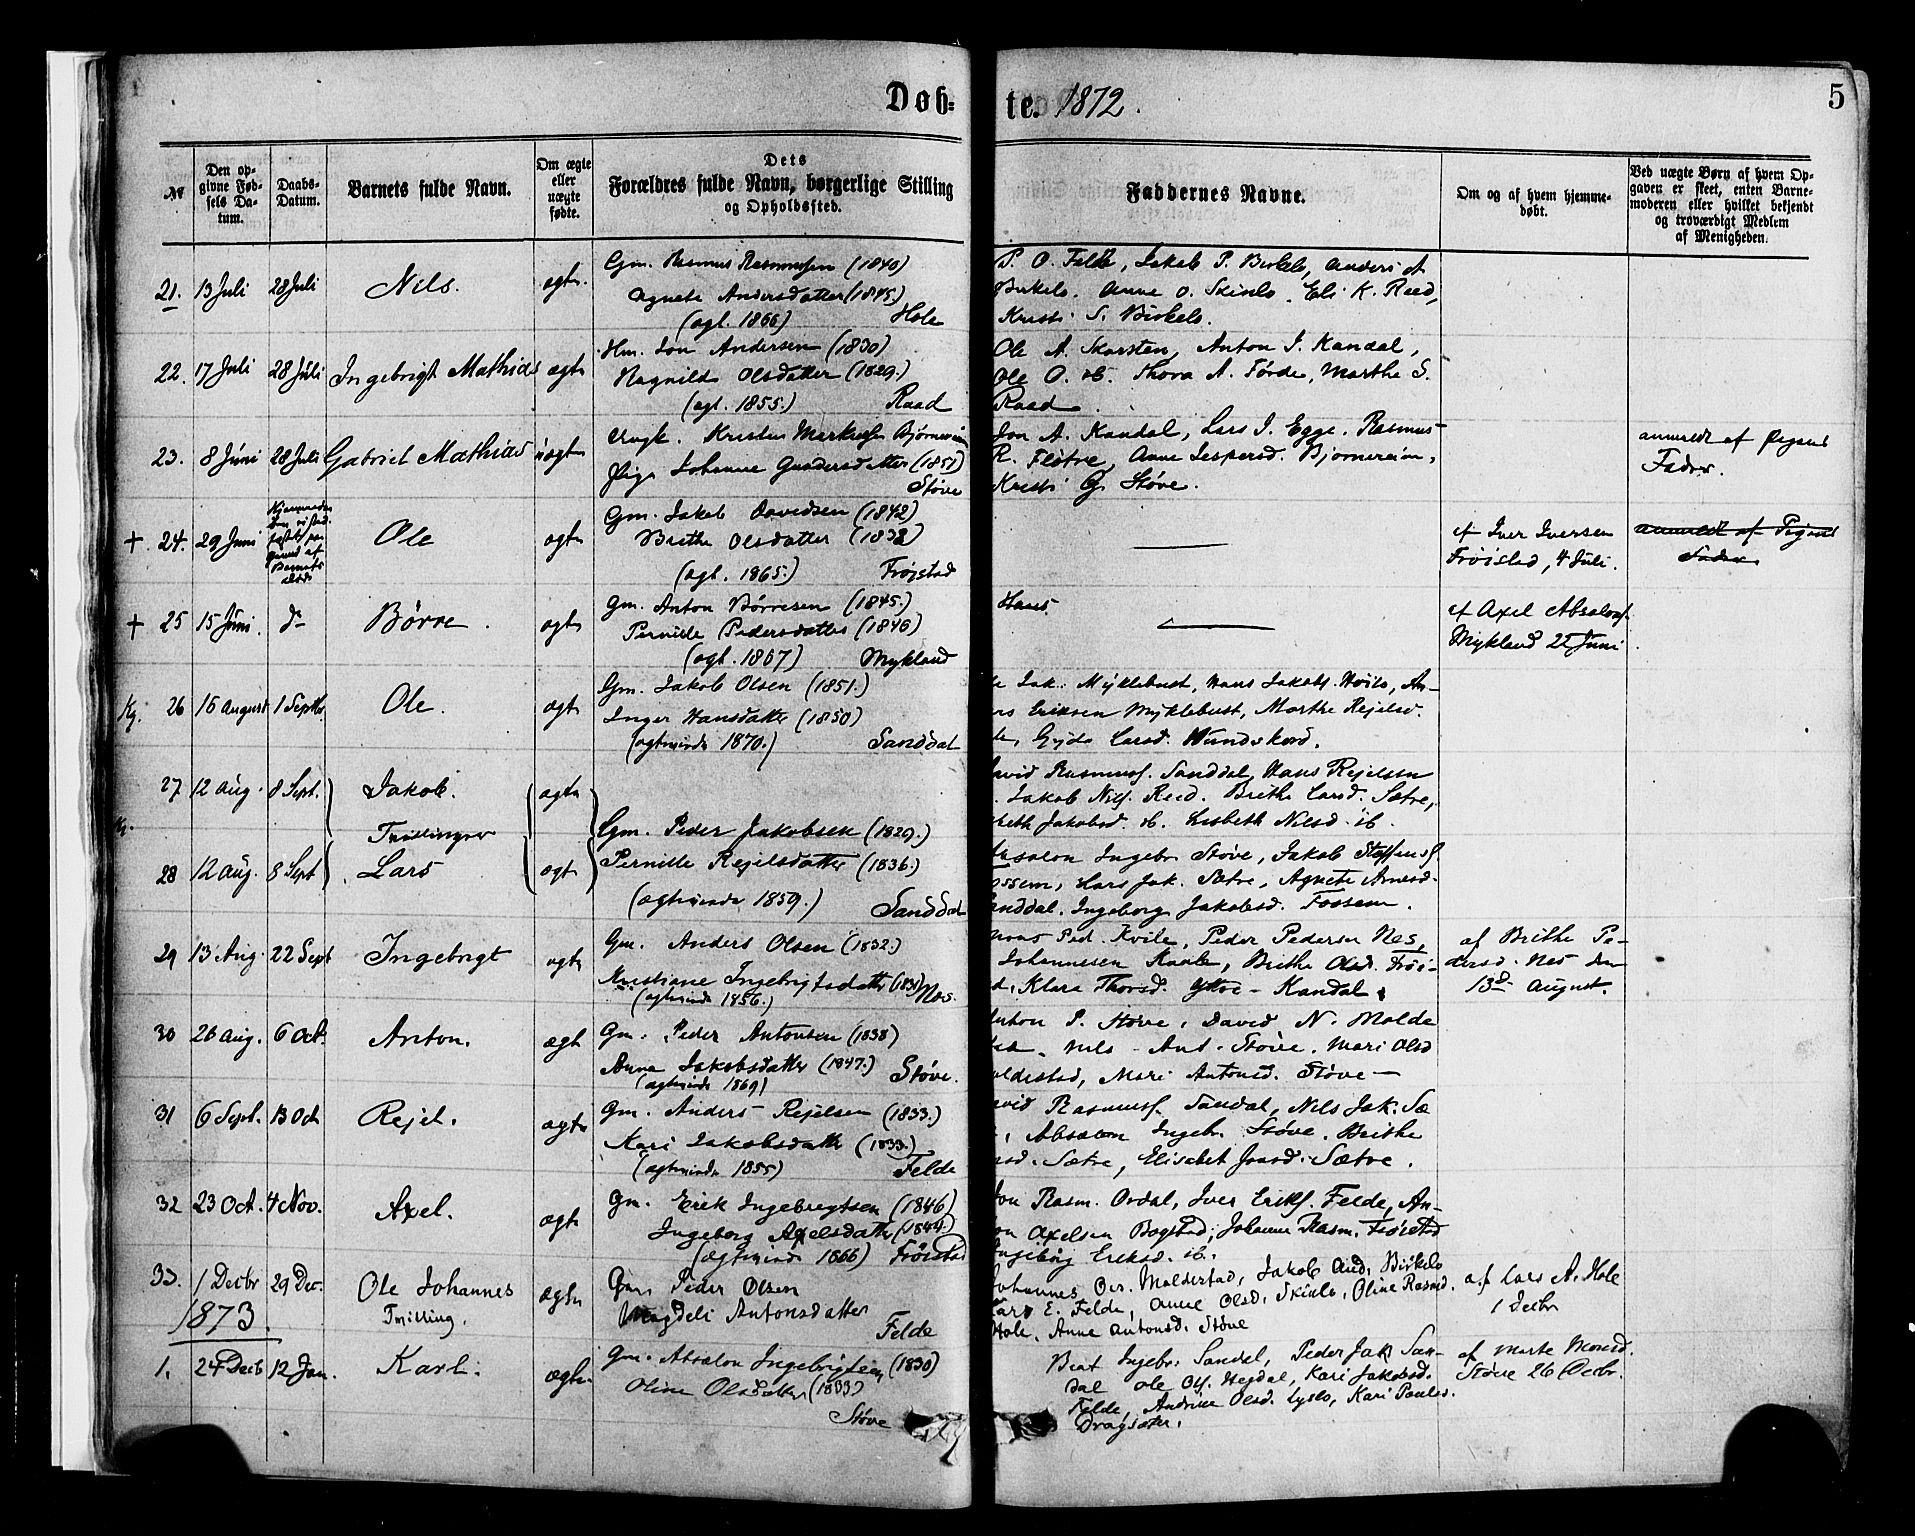 Døb-
te. 1872.
5
№
Den opgivne Fødsels Datum.
Daabs-Datum.
Barnets fulde Navn.
Om ægte eller uægte fødte.
Dets Forældres fulde Navn, borgerlige Stilling og Opholdssted.
Faddernes Navne.
Om og af hvem hjemmedøbt.
Ved uægte Børn af hvem Opgaven er skeet, enten Barnemoderen eller hvilket bekjendt og troværdigt Medlem af Menigheden.
21. 13 Juli 28 Juli Nils. ægte.
Gm. Rasmus Rasmussen (1840)
Agnete Andersdatter (1845)
(ægt. 1866) Hole
P. O. Felde, Jakob P. Birkelo, Anders A
Birkelo. Anne O. Skinlo. Eli K. Reed,
Kristi S. Birkelo.
22. 17 Juli 28 Juli Ingebrigt Mathias ægte
Hm. Jon Andersen (1830)
Ragnilde Olsdatter (1829.)
(ægt. 1855.) Raad
Ole A. Skarsten, Anton J. Kandal,
Ole O. ib. Thora A. Førde, Marthe S.
Raad.
23. 8 Juni 28 Juli Gabriel Mathias uægte
Ungk. Kristen Markusen Bjørnereim
Pige Johanne Gundersdatter (1851)
Støve
Jon A. Kandal, Lars J. Egge. Rasmus
R. Fløtre, Anne Jespersd. Bjørnereim,
Kristi G. Støve.
anmeldt af Pigens
Fader.
+ 24. 29 Juni Ole ægte
Gm. Jakob Davidsen (1842)
Brithe Olsdatter (1838)
(ægt. 1865.) Frøistad
af Iver Iversen
Frøistad, 4 Juli.
anmeldt af Pigens
Fader.
+ 25 15 Juni. do Børre. ægte
Gm. Anton Børresen (1845.)
Pernille Pedersdatter (1846)
(ægt. 1867) Mykland
Hans
af Axel Absalonsf.
Mykland 22 Juni.
Kg. 26 16 August 1 Septbr Ole. ægte
Gm. Jakob Olsen (1851.)
Inger Hansdatter (1850)
(ægtviede 1870.) Sanddal
Jak. Myklebust, Hans Jakobs. Høilo, An-
Eriksen Myklebust, Marthe Rejelsd.
Gyda Larsd. Wundskord.
27 12 Aug. 8 Sept. Jakob. ægte
Kg. Tvillinger
28 12 Aug. 8 Sept Lars ægte
Gm. Peder Jakobsen (1829.)
Pernille Rejelsdatter (1836.)
(ægtviede 1859.) Sanddal
David Rasmusf. Sanddal, Hans Rejelsen
Jakob Nilsf. Reed. Brithe Larsd. Sætre,
Jakobsd. ib. Lisbeth Nilsd. ib.
Absalon Ingebr. Støve, Jakob Steffensf.
Fossem, Lars Jak. Sætre, Agnete Arnesd.
Sanddal, Ingeborg Jakobsd. Fossem.
29 13 Aug. 22 Sept Ingebrigt ægte
Gm. Anders Olsen (1832.)
Kristiane Ingebrigtsdatter (1831) Nes.
(ægtviede 1856.)
Ped. Kvile, Peder Pedersen Nes,
Johannesen Raale, Brithe Olsd. Frøi-
Klara Thorsd. Ytre-Kandal.
af Brithe Pe-
dersd. Nes den
13de August.
30 26 Aug. 6 Oct. Anton. ægte
Gm. Peder Antonsen (1838)
Anne Jakobsdatter (1847.) Støve.
(ægtviede 1869)
Anton P. Støve, David N. Molde
Nils Ant. Støve, Mari Olsd
Moldestad, Mari Antonsd. Støve
31 6 Sept. 13 Oct Rejel. ægte
Gm. Anders Rejelsen (1833.)
Kari Jakobsdatter (1833.)
(ægtviede 1855) Felde
David Rasmusf. Sandal, Nils Jak. Sæ
Absalon Ingebr. Støve. Brithe
Sætre, Elisabet Jonsd. Sætre.
32 23 Oct. 4 Nov. Axel. ægte
Gm. Erik Ingebregtsen (1846)
Ingeborg Axelsdatter (1844)
(ægtviede 1866) Frøistad
Jon Rasm. Ordal, Iver Eriksf. Felde, An-
Axelsen Bogstad, Johanne Rasm. Frøistad
Ingeborg Eriksd. ib.
33. 1 Decbr 29 Dec. Ole Johannes ægte
Tvilling.
Gm. Peder Olsen
Magdeli Antonsdatter
Felde
Johannes Moldestad, Jakob And. Birkelo
Lars E. Felde, Anne Olsd. Skinlo, Oline Rasmd.
Hole, Anne Antonsd. Støve
af Lars A. Hole
1 Decbr
1873.
1. 24 Decb 12 Jan. Karl. ægte
Gm. Absalon Ingebrigtsen (1830)
Oline Olsdatter (1833)
Støve
Beat Ingebr. Sandal, Peder Jak. San-
dal Ole Olsf. Hegdal, Kari Jakobsd.
Felde, Andrine Olsd. Lyslo, Kari Paulsd.
Dragsæter.
af Marte Monsd.
Støve 26 Decbr.